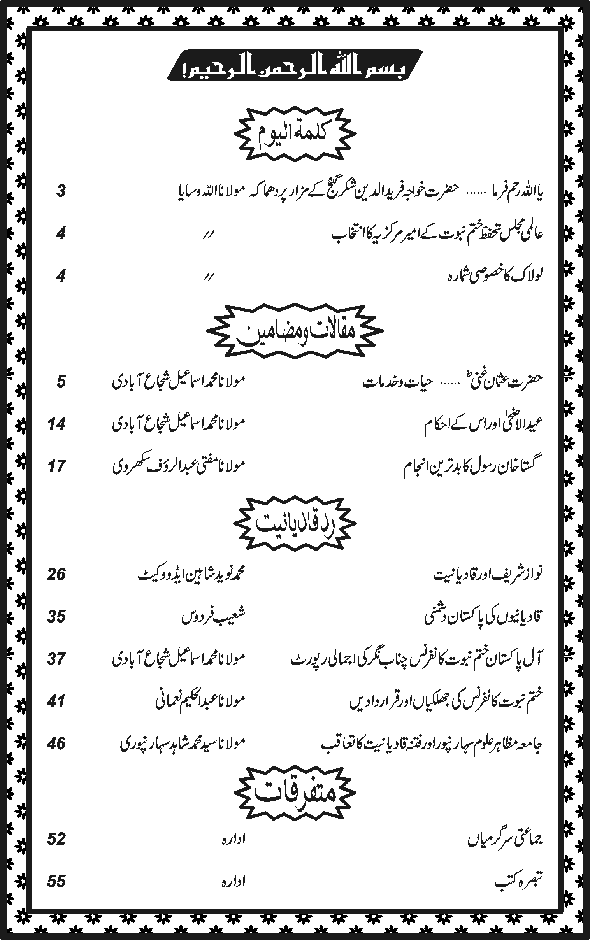 بسم اللہ الرحمن الرحیم!
کلمۃ الیوم
یا اللہ رحم فرما ...... حضرت خواجہ فرید الدین شکر گنج کے مزار پر دھماکہ مولانا اللہ وسایا 3
عالمی مجلس تحفظ ختم نبوت کے امیر مرکزیہ کا انتخاب // 4
لولاک کا خصوصی شمارہ // 4
مقالات و مضامین
حضرت عثمان غنیؓ ...... حیات و خدمات مولانا محمد اسماعیل شجاع آبادی 5
عید الاضحیٰ اور اس کے احکام مولانا محمد اسماعیل شجاع آبادی 14
گستاخان رسول کا بدترین انجام مولانا مفتی عبدالرؤف سکھروی 17
رد قادیانیت
نواز شریف اور قادیانیت محمد نوید شاہین ایڈووکیٹ 26
قادیانیوں کی پاکستان دشمنی شعیب فردوس 35
آل پاکستان ختم نبوت کانفرنس چناب نگر کی اجمالی رپورٹ مولانا محمد اسماعیل شجاع آبادی 37
ختم نبوت کانفرنس کی جھلکیاں اور قراردادیں مولانا عبدالحکیم نعمانی 41
جامعہ مظاہر علوم سہارنپور اور فتنہ قادیانیت کا تعاقب مولانا سید محمد شاہد سہارنپوری 46
متفرقات
جماعتی سرگرمیاں ادارہ 52
تبصرہ کتب ادارہ 55